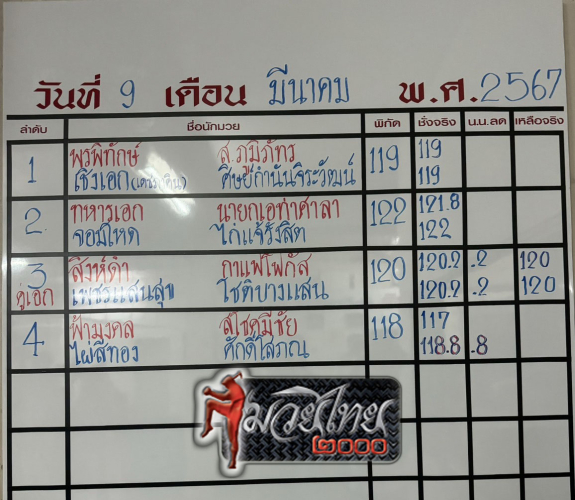 วันที่ 9 เดือน มีนาคม พ.ศ. 2567
ลำดับ ชื่อนักมวย พิกัด ชั่งจริง น.น.ลด เหลือจริง
1 พรพิทักษ์ ส.ภูมิภัทร 119 119
เชิงเอก ศิษย์กำนันจิระวัฒน์ 119
2 ทหารเอก นายกเอท่าศาลา 122 121.8
จอมโหด ไก่แจ้รังสิต 122
3 สิงห์ดำ กาแฟโฟกัส 120 120.2 .2 120
คู่เอก เพชรแสนสุข โชติบางแสน 120.2 .2 120
4 ฟ้ามงคล ส.โชคมีชัย 118 117
ไผ่สีทอง ศักดิ์โสภณ 118.8 .8
มวยไทย
๒๐๐๐